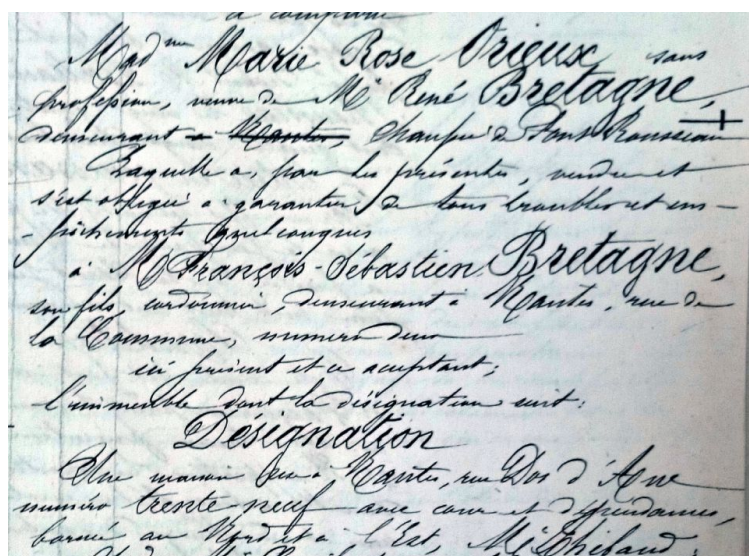 a comparu
Mad me Marie Rose Orieux, sans
profession, veuve de Mr René Bretagne,
demeurant à Nantes, chaussée de Pont Rousseau
Laquelle a, par les présentes, vendu et
s'est obligée à garantir de tous troubles et em-
-pêchements quelconques
à M François-Sébastien Bretagne,
son fils, cordonnier, demeurant à Nantes, rue de
la Commune, numéro deux
ici présent et ce acceptant;
l'immeuble dont la désignation suit:
Désignation
Une maison sise à Nantes, rue Dos d'Ane
numéro trente-neuf avec cour et dépendances,
bornée au Nord et à l'Est, Mr Thibaud;